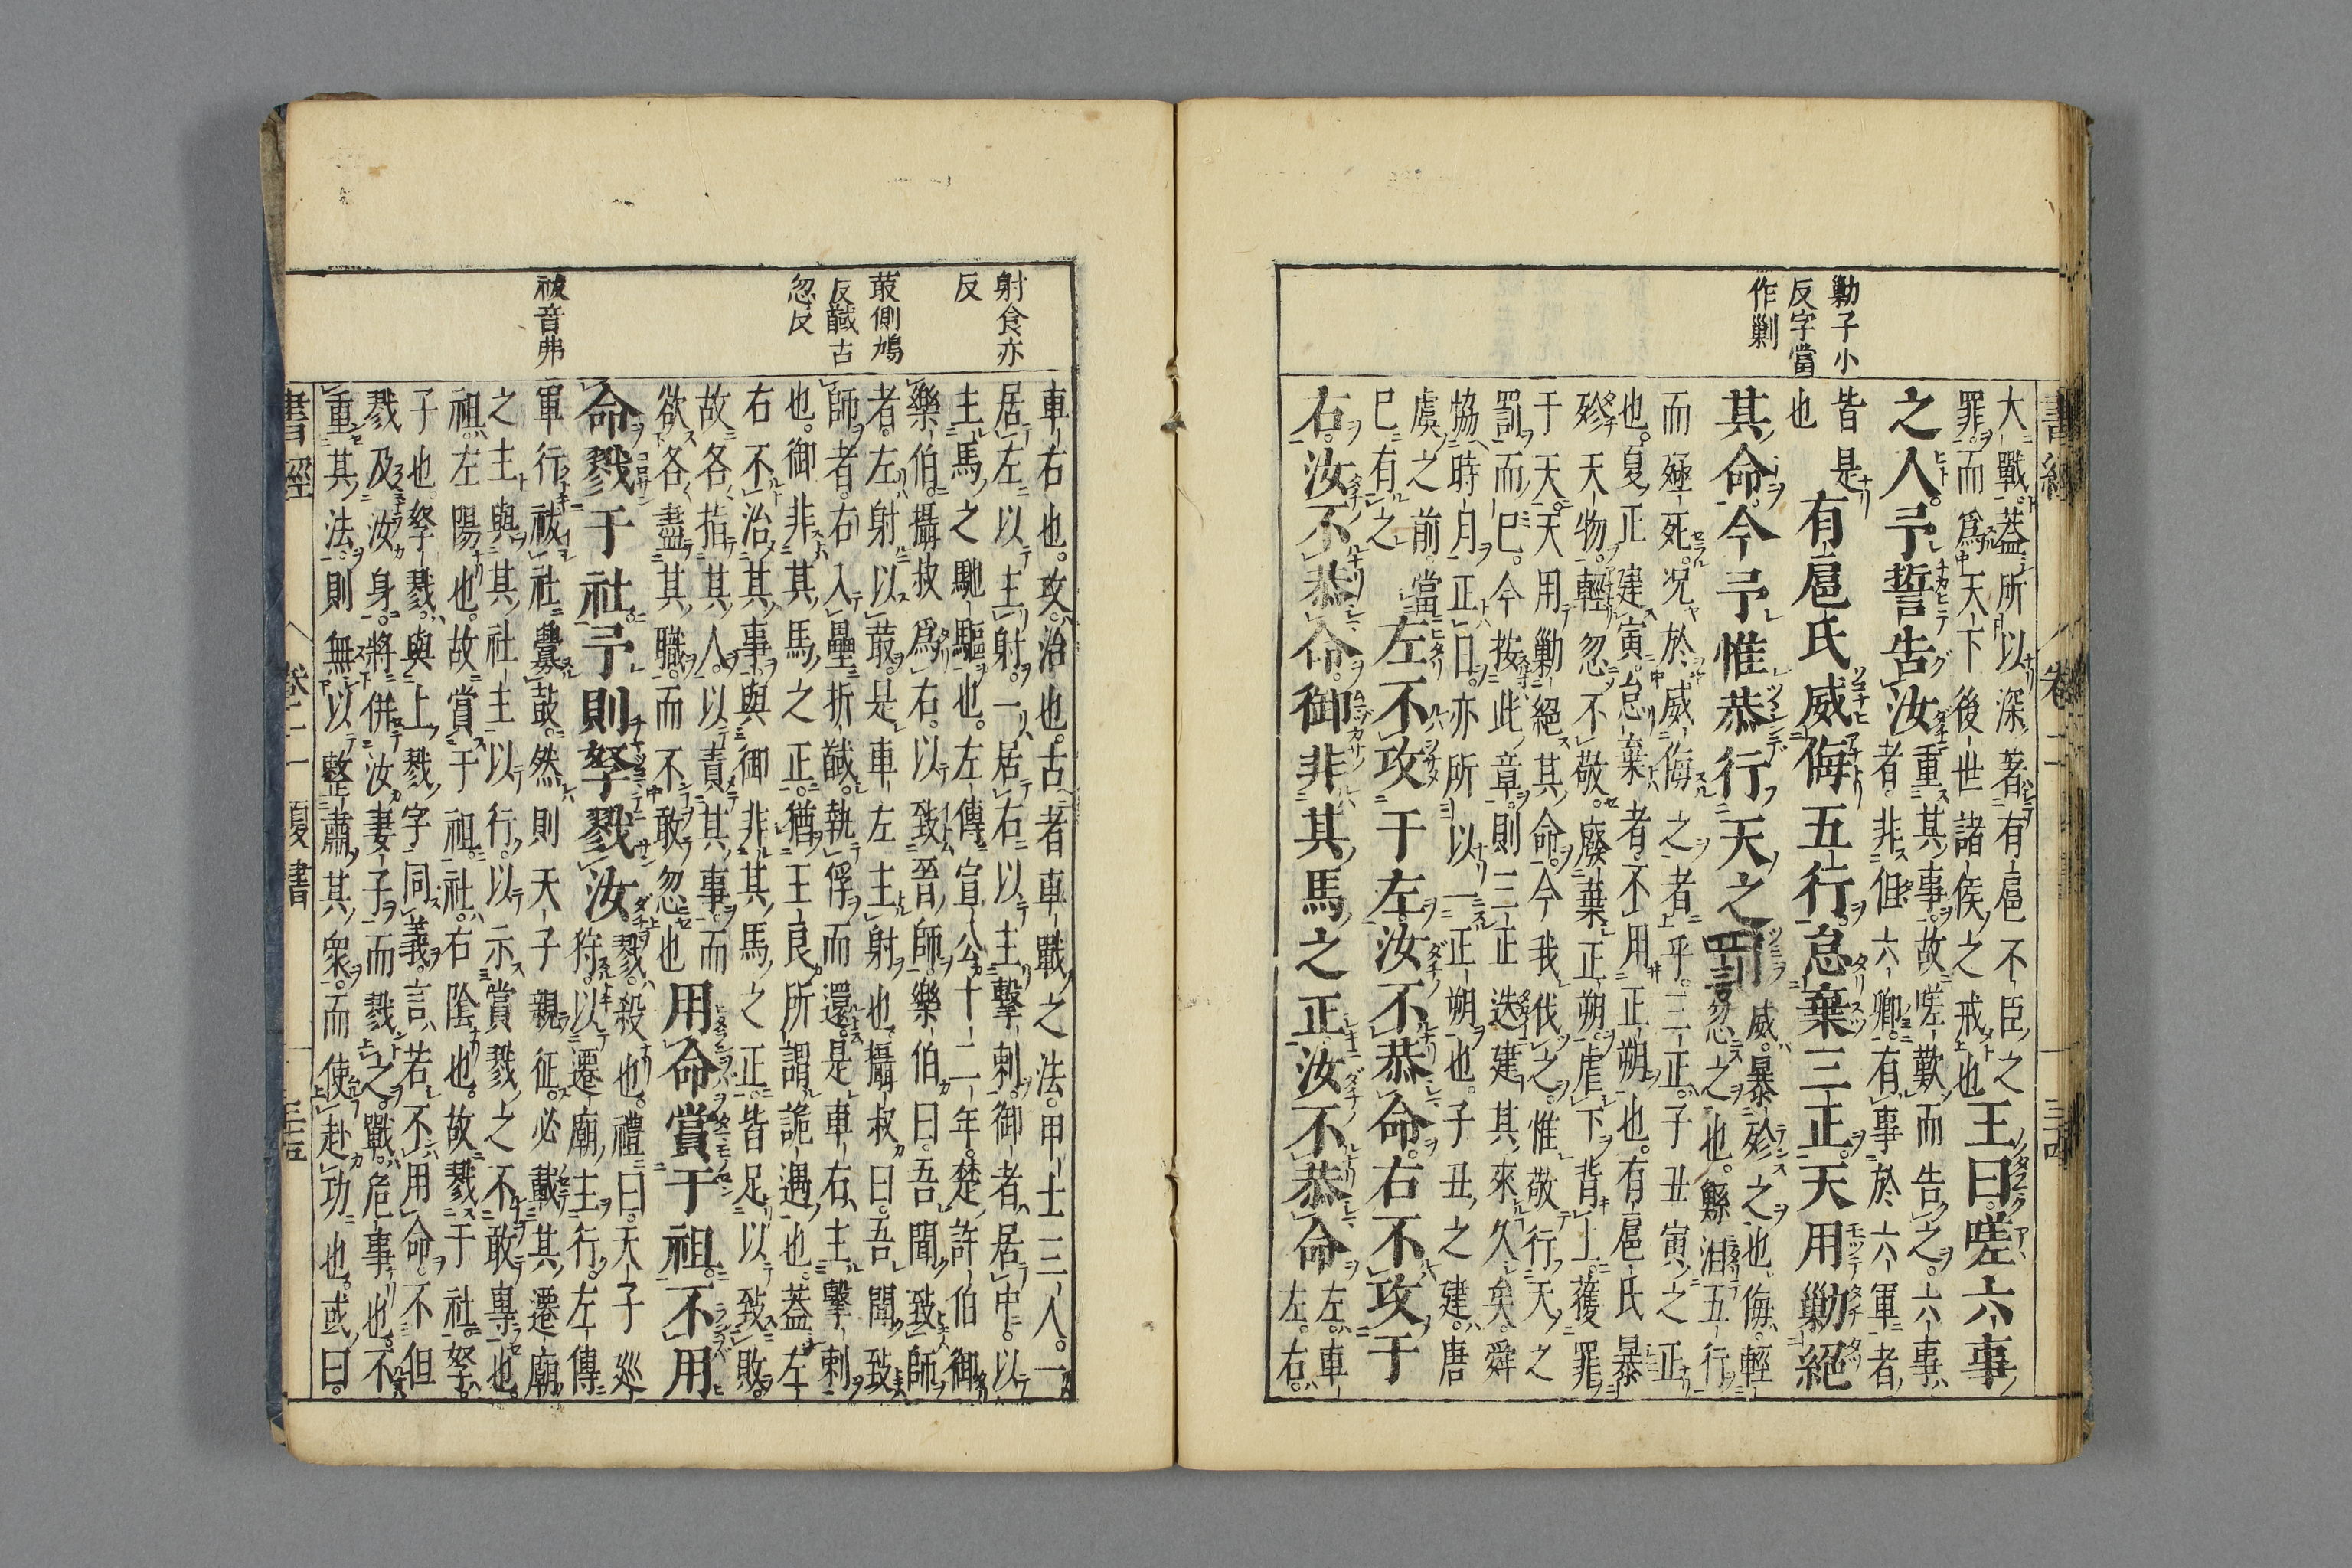 書經 卷二 三十四
勦子小
反字當
作剿
大戰。蓋所以深著有扈不臣之
罪。而爲天下後世諸侯之戒也
王曰。嗟六事
之人。予誓告汝
重其事。故嗟歎而告之。六事
者。非但六卿。有事於六軍者
皆是
也
有扈氏威侮五行。怠棄三正。天用勦絕
其命。今予惟恭行天之罰
威。暴殄之也。侮。輕
忽之也。鯀汩五行
而殛死。況於威侮之者乎。三正。子丑寅之正
也。夏正建寅。怠棄者。不用正朔也。有扈氏暴
殄天物。輕忽不敬。廢棄正朔。虐下背上。獲罪
于天。天用勦絕其命。今我伐之。惟敬行天之
罰而已。今按此章。則三正迭建。其來久矣。舜
協時月正日。亦所以一正朔也。子丑之建。唐
虞之前。當
已有之
左不攻于左。汝不恭命。右不攻于
右。汝不恭命。御非其馬之正。汝不恭命
左。車
左。右。
射食亦
反
菆側鳩
反馘古
忽反
祓音弗
車右也。攻。治也。古者車戰之法。甲士三人。一
居左以主射。一居右以主擊刺。御者居中。以
主馬之馳驅也。左傳宣公十二年。楚許伯御
樂伯。攝叔爲右。以致晉師。樂伯曰。吾聞致師
者。左射以菆。是車左主射也。攝叔曰。吾聞致
師者。右入壘折馘。執俘而還。是車右主擊刺
也。御非其馬之正。猶王良所謂詭遇也。蓋左
右不治其事。與御非其馬之正。皆足以致敗。
故各指其人。以責其事。而
欲各盡其職。而不敢忽也
用命賞于祖。不用
命戮于社。予則孥戮汝
戮。殺也。禮曰。天子巡
狩。以遷廟主行。左傳
軍行祓社釁鼓。然則天子親征。必載其遷廟
之主。與其社主以行。以示賞戮之不敢專也。
祖。左。陽也。故賞于祖。社。右。陰也。故戮于社。孥。
子也。孥戮。與上戮字同義。言若不用命。不但
戮及汝身。將併汝妻子而戮之。戰。危事也。不
重其法。則無以整肅其衆。而使赴功也。或曰。
書經 卷二 夏書 三十五